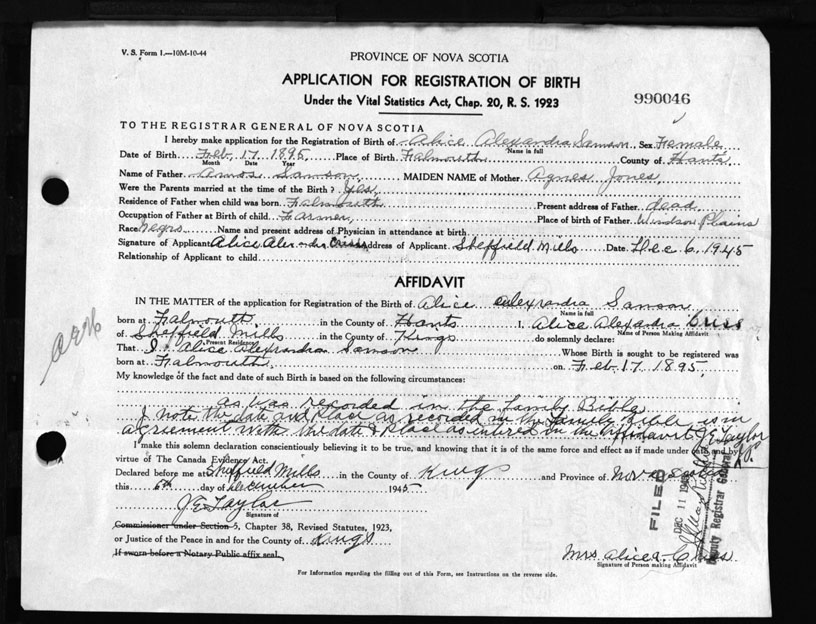 V. S. Form 1.—10M-10-44
PROVINCE OF NOVA SCOTIA
APPLICATION FOR REGISTRATION OF BIRTH
Under the Vital Statistics Act, Chap. 20, R. S. 1923
990046
TO THE REGISTRAR GENERAL OF NOVA SCOTIA
I hereby make application for the Registration of Birth of Alice Alexandra Samson Sex Female
Name in full
Date of Birth Feb. 17 1895 Place of Birth Falmouth County of Hants
Month Date Year
Name of Father Amos Samson MAIDEN NAME of Mother Agnes Jones
Were the Parents married at the time of the Birth? Yes
Residence of Father when child was born Falmouth Present address of Father dead
Occupation of Father at Birth of child Farmer Place of birth of Father Windsor Plains
Race Negro Name and present address of Physician in attendance at birth
Signature of Applicant Alice Alexandra Address of Applicant Sheffield Mills Date Dec 6, 1945
Relationship of Applicant to child
AFFIDAVIT
IN THE MATTER of the application for Registration of the Birth of Alice Alexandra Samson
Name in full
born at Falmouth in the County of Hants I, Alice Alexandra
Name of Person Making Affidavit
of Sheffield Mills in the County of Kings do solemnly declare:
Present Residence
That I, Alice Alexrandra Samson Whose Birth is sought to be registered was
born at Falmouth on Feb. 17 1895
My knowledge of the fact and date of such Birth is based on the following circumstances:
as was recorded in the Family Bible
I note the date and place as recorded in the Family Bible is in
agreement with the date & place as entered in the affidavit J E Taylor
J.P.
I make this solemn declaration conscientiously believing it to be true, and knowing that it is of the same force and effect as if made under oath and by
virtue of The Canada Evidence Act.
Declared before me at Sheffield Mills in the County of Kings and Province of Nova Scotia
this 6th day of December 1945
J E Taylor
Signature of
Commissioner under Section 5, Chapter 38, Revised Statutes, 1923,
or Justice of the Peace in and for the County of Kings
If sworn before a Notary Public affix seal.
FILED
DEC 11 1945
Deputy Registrar General
Mrs Alice A.
Signature of Person making Affidavit
For Information regarding the filling out of this Form, see Instructions on the reverse side.